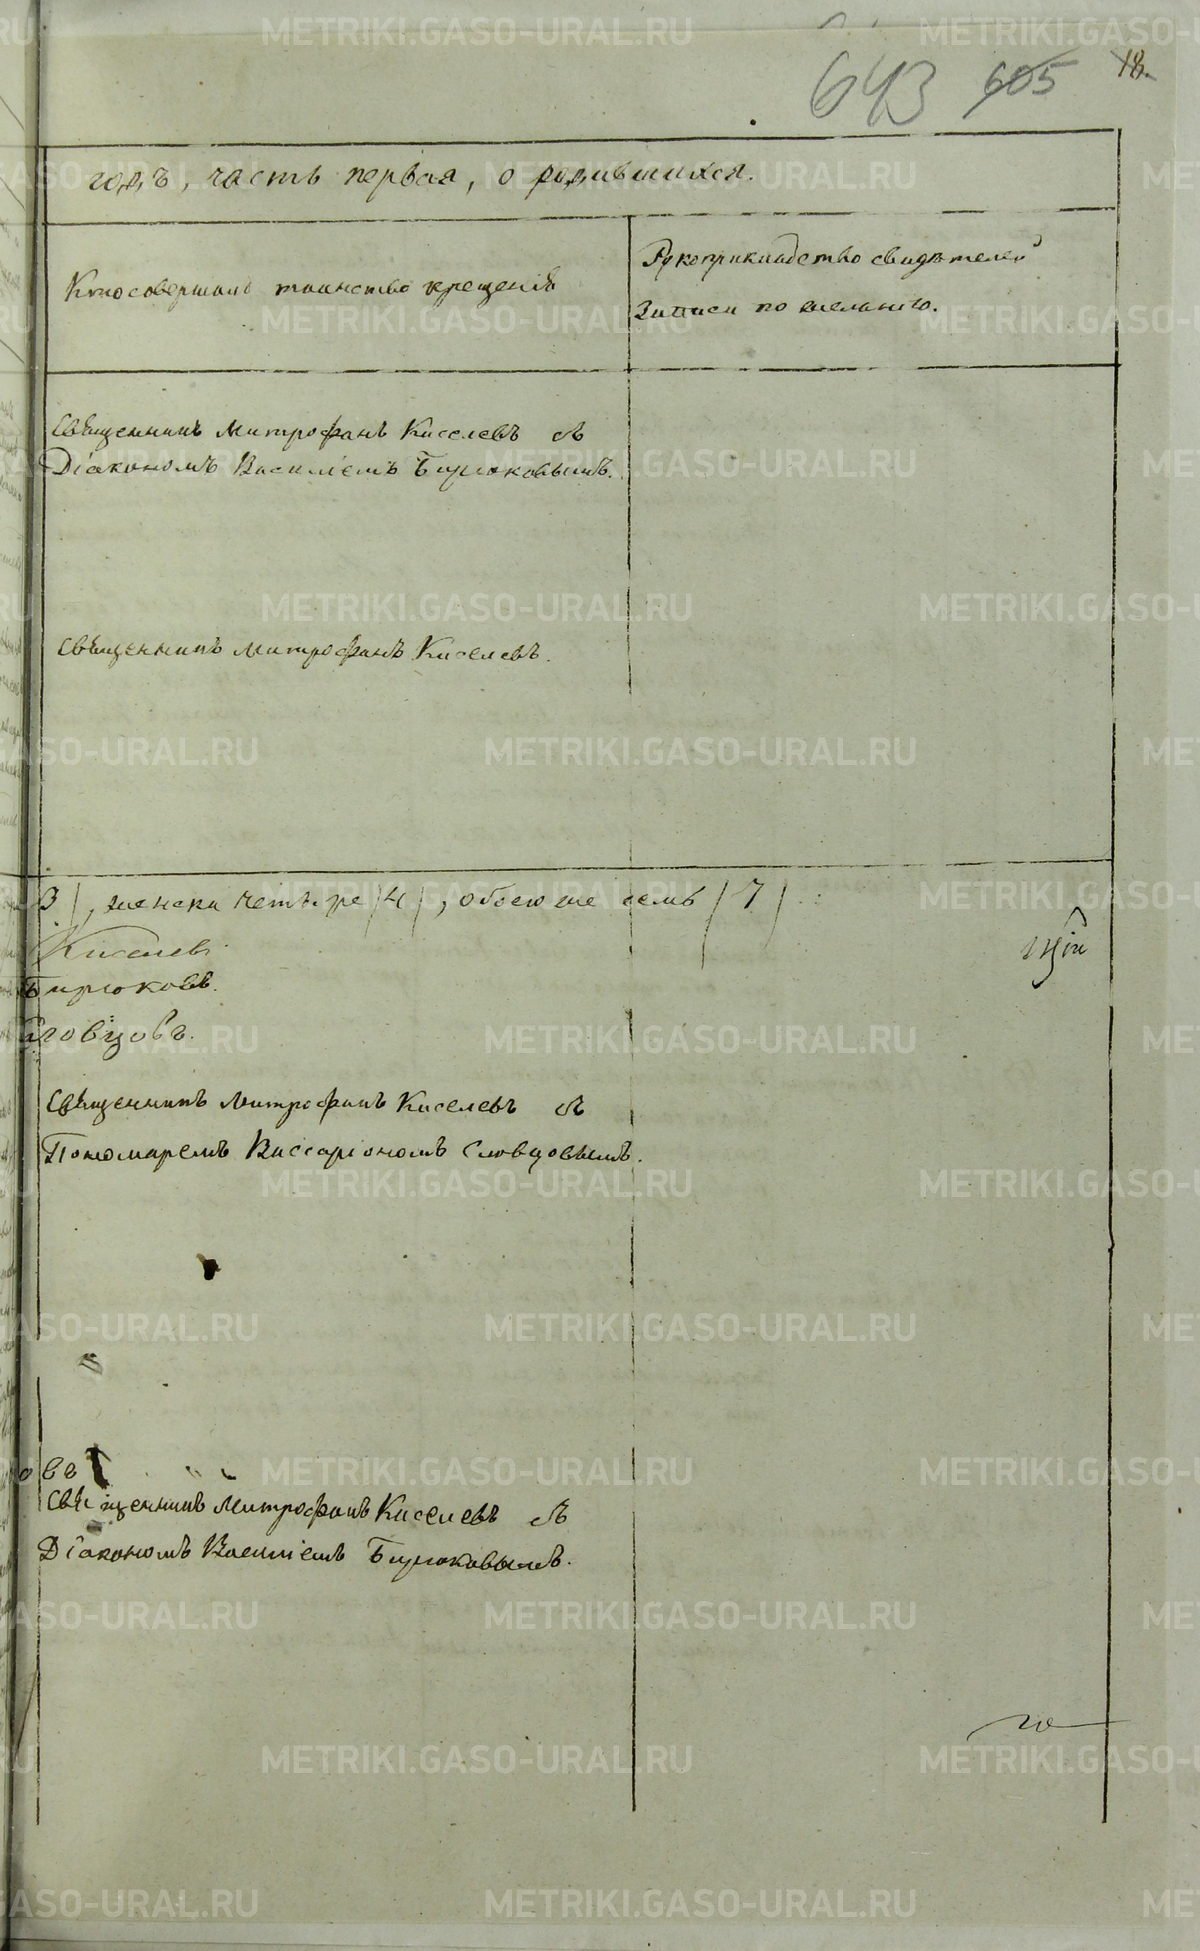 643 605 18.
годъ, часть первая, о родившихся.
Кто совершалъ таинство крещенія
Рукоприкладство свидѣтелей
записи по желанію.
Священникъ Митрофанъ Киселевъ съ
Діакономъ Василіемъ Бирюковымъ.
Священникъ Митрофанъ Киселевъ.
3), женска четыре (4), обоего же семь (7)
Киселевъ
Бирюковъ.
Словцовъ.
Священникъ Митрофанъ Киселевъ съ
Пономаремъ Виссаріономъ Словцовымъ.
въ
Священникъ Митрофанъ Киселевъ съ
Діакономъ Василіемъ Бирюковымъ.
METRIKI.GASO-URAL.RU